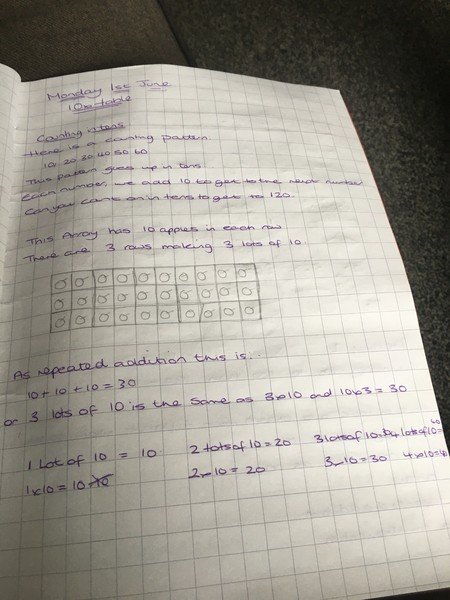 Monday 1st June
10x table
Counting in tens
Here is a counting pattern.
10, 20 30 40 50 60
This pattern goes up in tens
Each number, we add 10 to get to the next number
Can you count on in tens to get to 120.
This Array has 10 apples in each row
There are 3 rows making 3 lots of 10.
As repeated addition this is:.
10 + 10 + 10 = 30
or 3 lots of 10 is the same as 3x10 and 10x3 = 30
1 Lot of 10 = 10 2 lots of 10 = 20 3 lots of 10 4 lots of 10 =
1x10 = 10 2x10 = 20 3x10 = 30 4x10 =